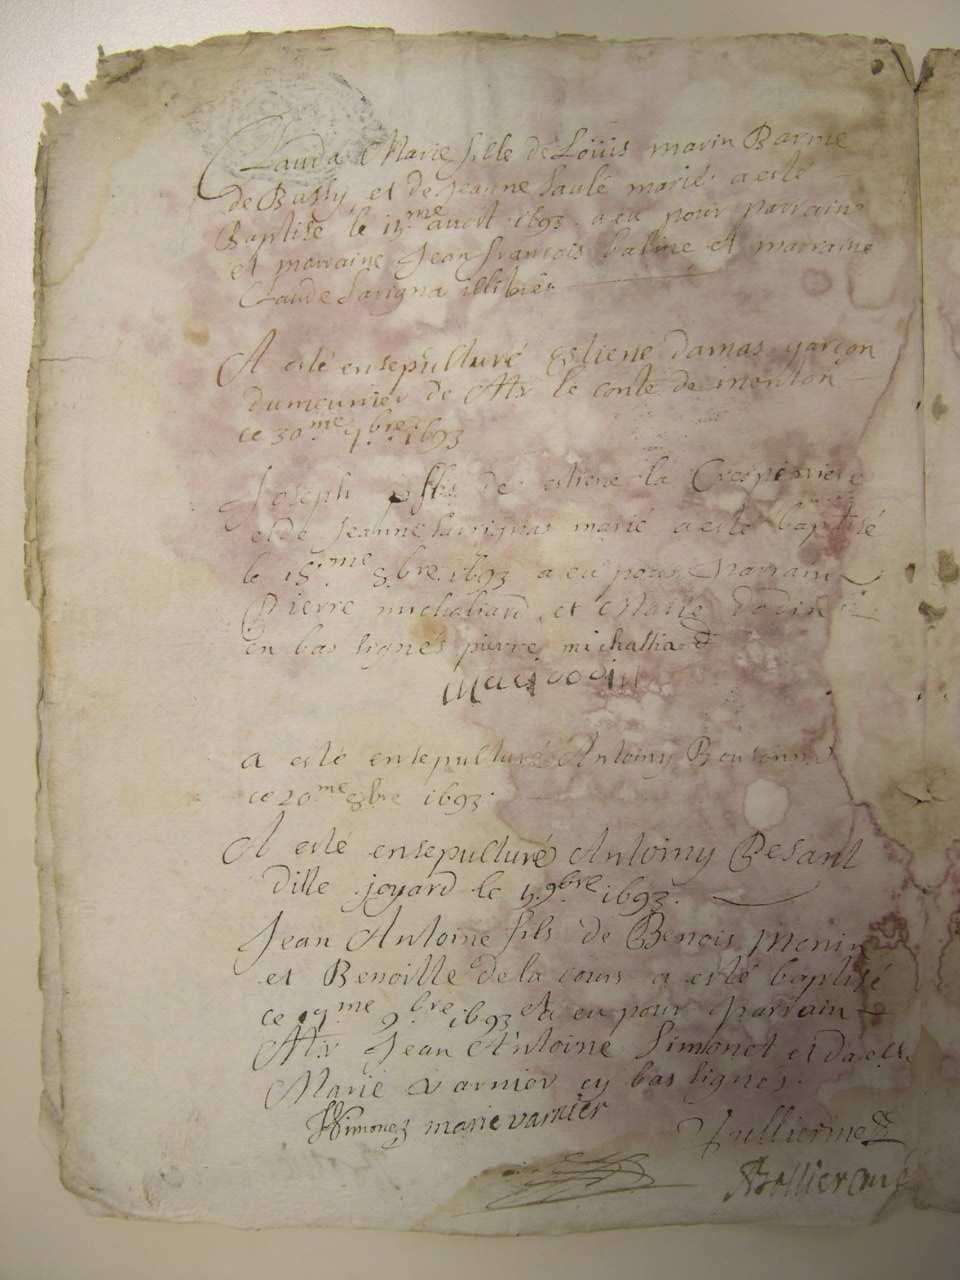 Clauda Marie fille de Loüis marin Barme
de Bussy, et de Jeanne Saulé marié a esté
Baptisé le 15.me auoit 1693. a eu pour parrain
et marraine Jean françois barme et marraine
Claude Savigna illibrés
A esté ensepulturé Estiene damas garçon
du meunier de Mr le conte de monton
ce 30.me 7.bre 1693
Joseph fils de estiene la Crespiniere
et de Jeanne Savignat marié a esté baptisé
le 15.me 8.bre 1693 a eu pour Parrain
Pierre michaliard et Marie Dodin
en bas signés pierre michallia d
Marie dodin
a esté ensepulturé Antoiny
ce 20me 8bre 1693.
A esté ensepulturé Antoiny Besant
ditte joyard le 9bre 1693.
Jean Antoine fils de Benois Monin
et Benoitte de la cours a esté baptisé
ce me 9bre 1693 et a eu pour parrain
Mr Jean Antoine Simonet et
Marie Varnier cy bas signés.
Simonet marie varnier